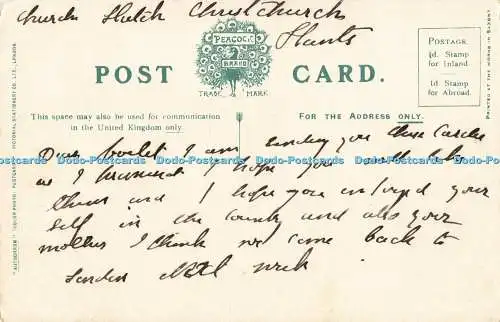 Church Hatch Christchurch
Hants
PEACOCK
BRAND
TRADE MARK
POST CARD.
POSTAGE.
½d. Stamp
for Inland.
1d Stamp
for Abroad.
PRINTED AT THE WORKS IN SAXONY
This space may also be used for communication
in the United Kingdom only.
FOR THE ADDRESS ONLY.
"AUTOCHROM" (COLOUR PHOTO) POSTCARD. PICTORIAL STATIONERY CO., LTD., LONDON.
Dear I am sending you these Cards
Dodo-Postcards Dodo-Postcards Dodo-Postcards Dodo-Postcards Dodo-Postcards Dodo-Postcards
as I promised I hope you will like
them and I hope you enjoyed your
self in the country and also your
mother I think we come back to
London next week